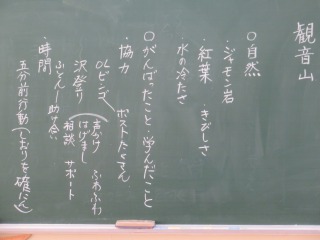 観音山
○自然
・ジャモン岩
・紅葉 ・きびしさ
水の冷たさ
○がんばったこと・学んだこと
・協力 ポストたくさん
OLビンゴ
沢登り 声かけ ふわふわ
はげまし サポート
相談
ふとん 助け合い
・時間
五分前行動（しおりを確にん）